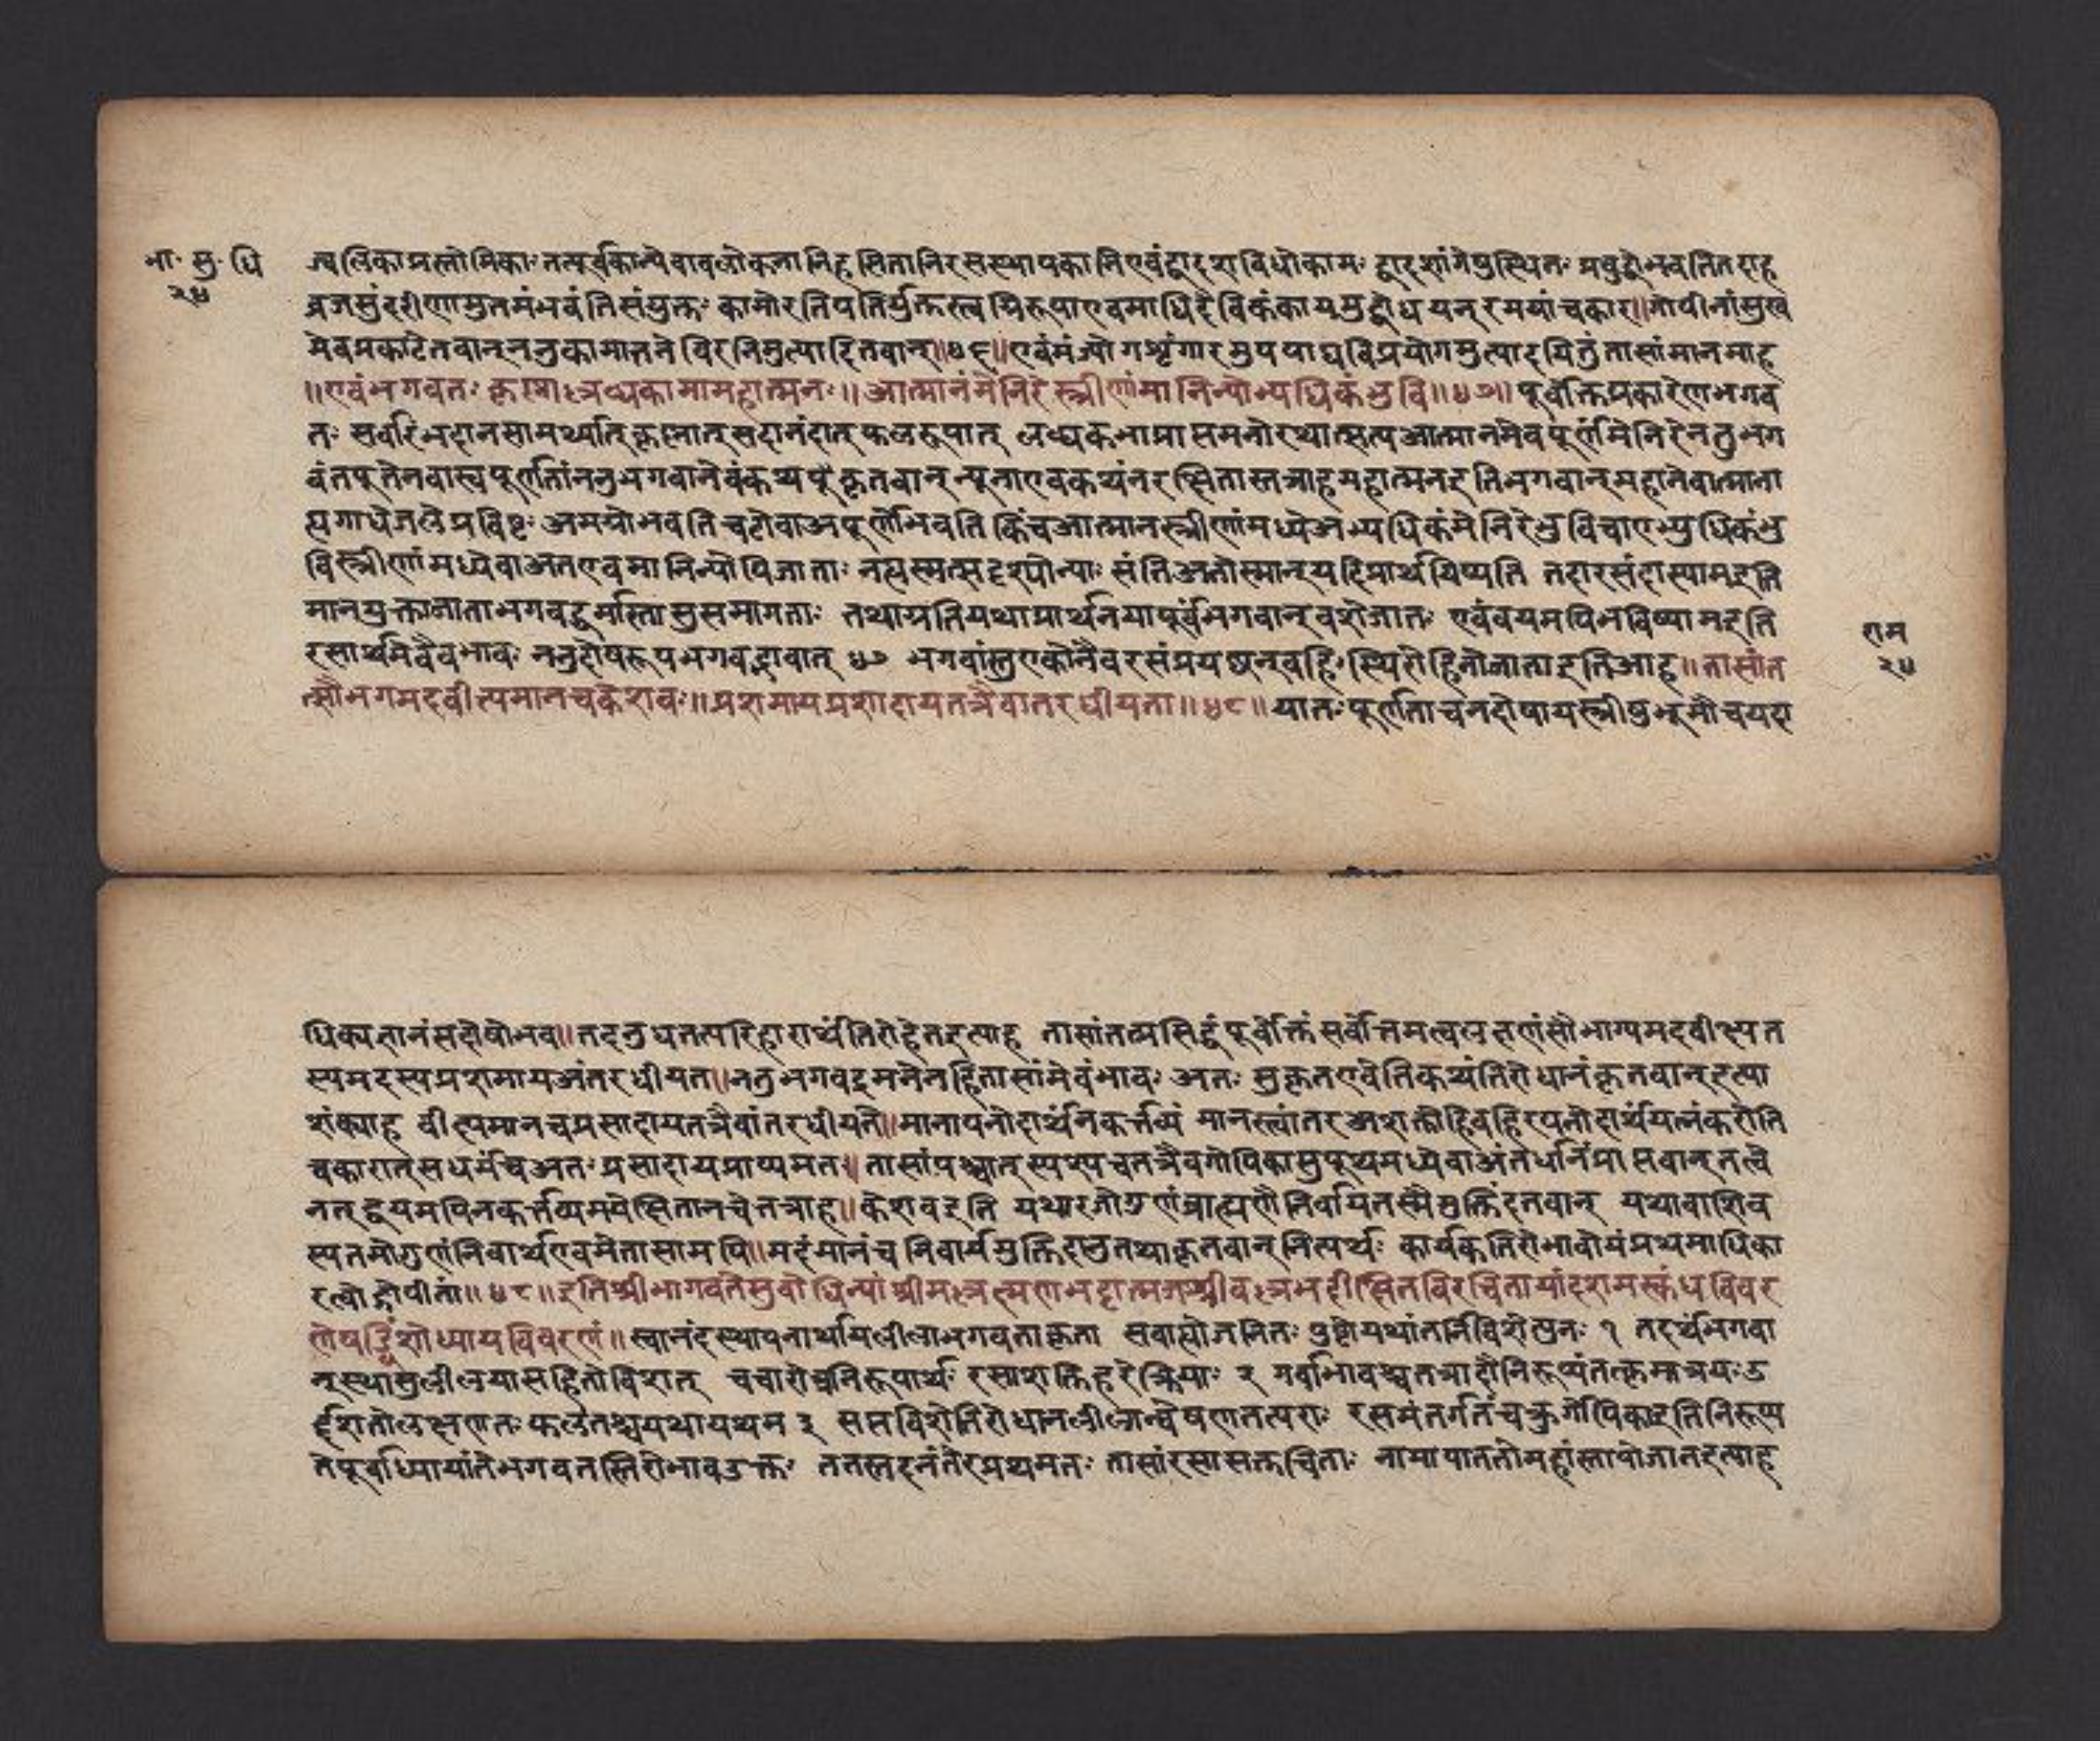 भा॰ सु॰ धि
२५
ज्वलिकाप्रस्तोमिकाः तत्पूर्वकान्येवावलोकनानिहसितानिरसस्थापकानिएवंद्वादशविधोकामः द्वादशांगेषुस्थितः प्रबुद्धोभवतितदाह
व्रजसुंदरीणामुतमंभवंतिसंयुक्तः कामोरतिपतिर्युक्तस्त्वयिरूपाएवमाधिदैविकंकायमुद्बोधयन्रमयांचकार॥गोपीनांसुख
मेवप्रकटितवान्ननुकामात्तनेविरनिमुत्पादितवान्॥४६॥एवंसंज्योगशृंगारमुपपाद्यविप्रयोगमुत्पादयितुंतासांमानमाह
॥एवंभगवतः कृस्माल्लब्धकामामहात्मनः॥आत्मानंमेनिरेस्त्रीणांमानिन्योभ्यधिकंभुवि॥४७॥पूर्वोक्तप्रकारेणभगव
तः सर्वारिभदानसामर्थ्यात्कृस्मात्सदानंदात्फलरूपात् लब्धकभाप्राप्तमनोरथात्सत्यआत्मानमेवपूर्णमेनिरेनतुभग
वंतपूतेनवास्वपूर्णतांननुभगवानेवंकथंपूकृतवान्न्यूनाएवकथंनरक्षितास्तत्राहमहात्मनइतिभगवान्महानेवात्माना
ह्यगाधेजलेप्रविष्टः अमयोभवतिचटोवाअपूर्णोभवति किंचआत्मानस्त्रीणांमध्येअभ्यधिकंमेनिरेभुविचाएभ्युधिकंभु
विस्त्रीणांमध्येवाअतएवमानिन्योपिजाताः नह्यस्मत्सदृश्योन्याः संतिअतोस्मान्यदिप्रार्थयिष्यति तदारसंदास्यामइति
मानयुक्ताजाताभगवद्धर्मास्तासुसमागताः तथाप्रतियथाप्रार्थनयापूर्वंभगवान्वशेजातः एवंवयमपिभविष्यामइति
रसार्थमेवैवभावः ननुदोषरूपभगवद्भावात् ४७ भगवांस्तुएकोनैवरसंप्रयछन्वहिःस्थिरोहितोजाताइतिआह॥तासांत
त्सौभगमदवीत्यमानचकेशवः॥प्रशमायप्रशादायतत्रैवातरधीयता॥४८॥यातःपूर्णताचनदोषायस्त्रीषुभूमौचयदा
राम
२५
धिक्यज्ञानंसदोषोभव॥तदनुधतत्परिहारार्थंतिरोहेतइत्याह तासांतत्प्रसिद्धंपूर्वोक्तंसर्वोत्तमत्वलक्षणंसौभाग्यमदवीक्ष्यत
स्यमदस्यप्रशमायअंतरधीयत॥ननुभगवद्गमनेनहितासांमेवंभावः अतः सुकृतएवेतिकथंतिरोधानंकृतवान्इत्या
शंक्याह वीत्यमानचप्रसादायतत्रैवांतरधीयते॥मानापनोदार्थंनकर्त्तव्यं मानस्त्वांतरअशक्तोहिबहिरपनोदार्थंयत्नंकरोति
चकारात्सधर्मंचअतःप्रसादायप्राप्यमत॥तासांप्रश्चात्स्पश्यचतत्रैवगोपिकासुपूथमध्येवाअंतर्धानंप्राप्तवान्तत्वे
नत्द्वयमपिनकर्त्तव्यमपेक्षितानचेतत्राह॥केशवइति यथारजोगुणंब्राह्मणैनिर्वार्यतस्मैमुक्तिंदतवान् यथावाशिव
स्यतमोगुणंनिवार्थएवमेतासामपि॥मदंमानंचनिवार्यमुक्तिदातुतथाकृतवान्नित्यर्थः कार्यर्कतिरोभावोयंप्रथमाधिका
रत्वोद्गोपीतां॥४८॥इतिश्रीभागवतेसुबोधिन्यांश्रीमल्लक्ष्मणभट्टात्मजश्रीवल्लभदीक्षितविरचितायांदशमस्कंधविवर
णेषड्विंशोध्यायविवरणं॥स्वानंदस्थापनार्थायलीलाभगवताकृता सवाह्योजनितः पुष्टोयथांतर्निविशेत्पुनः १ तदर्थंभगवा
न्स्थासुलीलयासहितोविशत् चचारोचनिरूपार्थः रसाशक्तिर्हरेःक्रियाः २ गर्वाभावश्चतत्रादौनिरूप्यंतत्क्रमात्रयःउ
र्द्दशतोलक्षणतः फलतश्चयथायथम ३ सप्तविंशेतिरोधानलीलान्वेषणतत्पराः रसमंतर्गतंचक्रुर्गोपिकाइतिनिरूप्य
तेपूर्वाध्यायांतेभगवतस्तिरोभावउक्तः ततस्तदनंतरंप्रथमतः तासांरसासक्तचिताः नामापाततोमहांस्तापोजातइत्याह